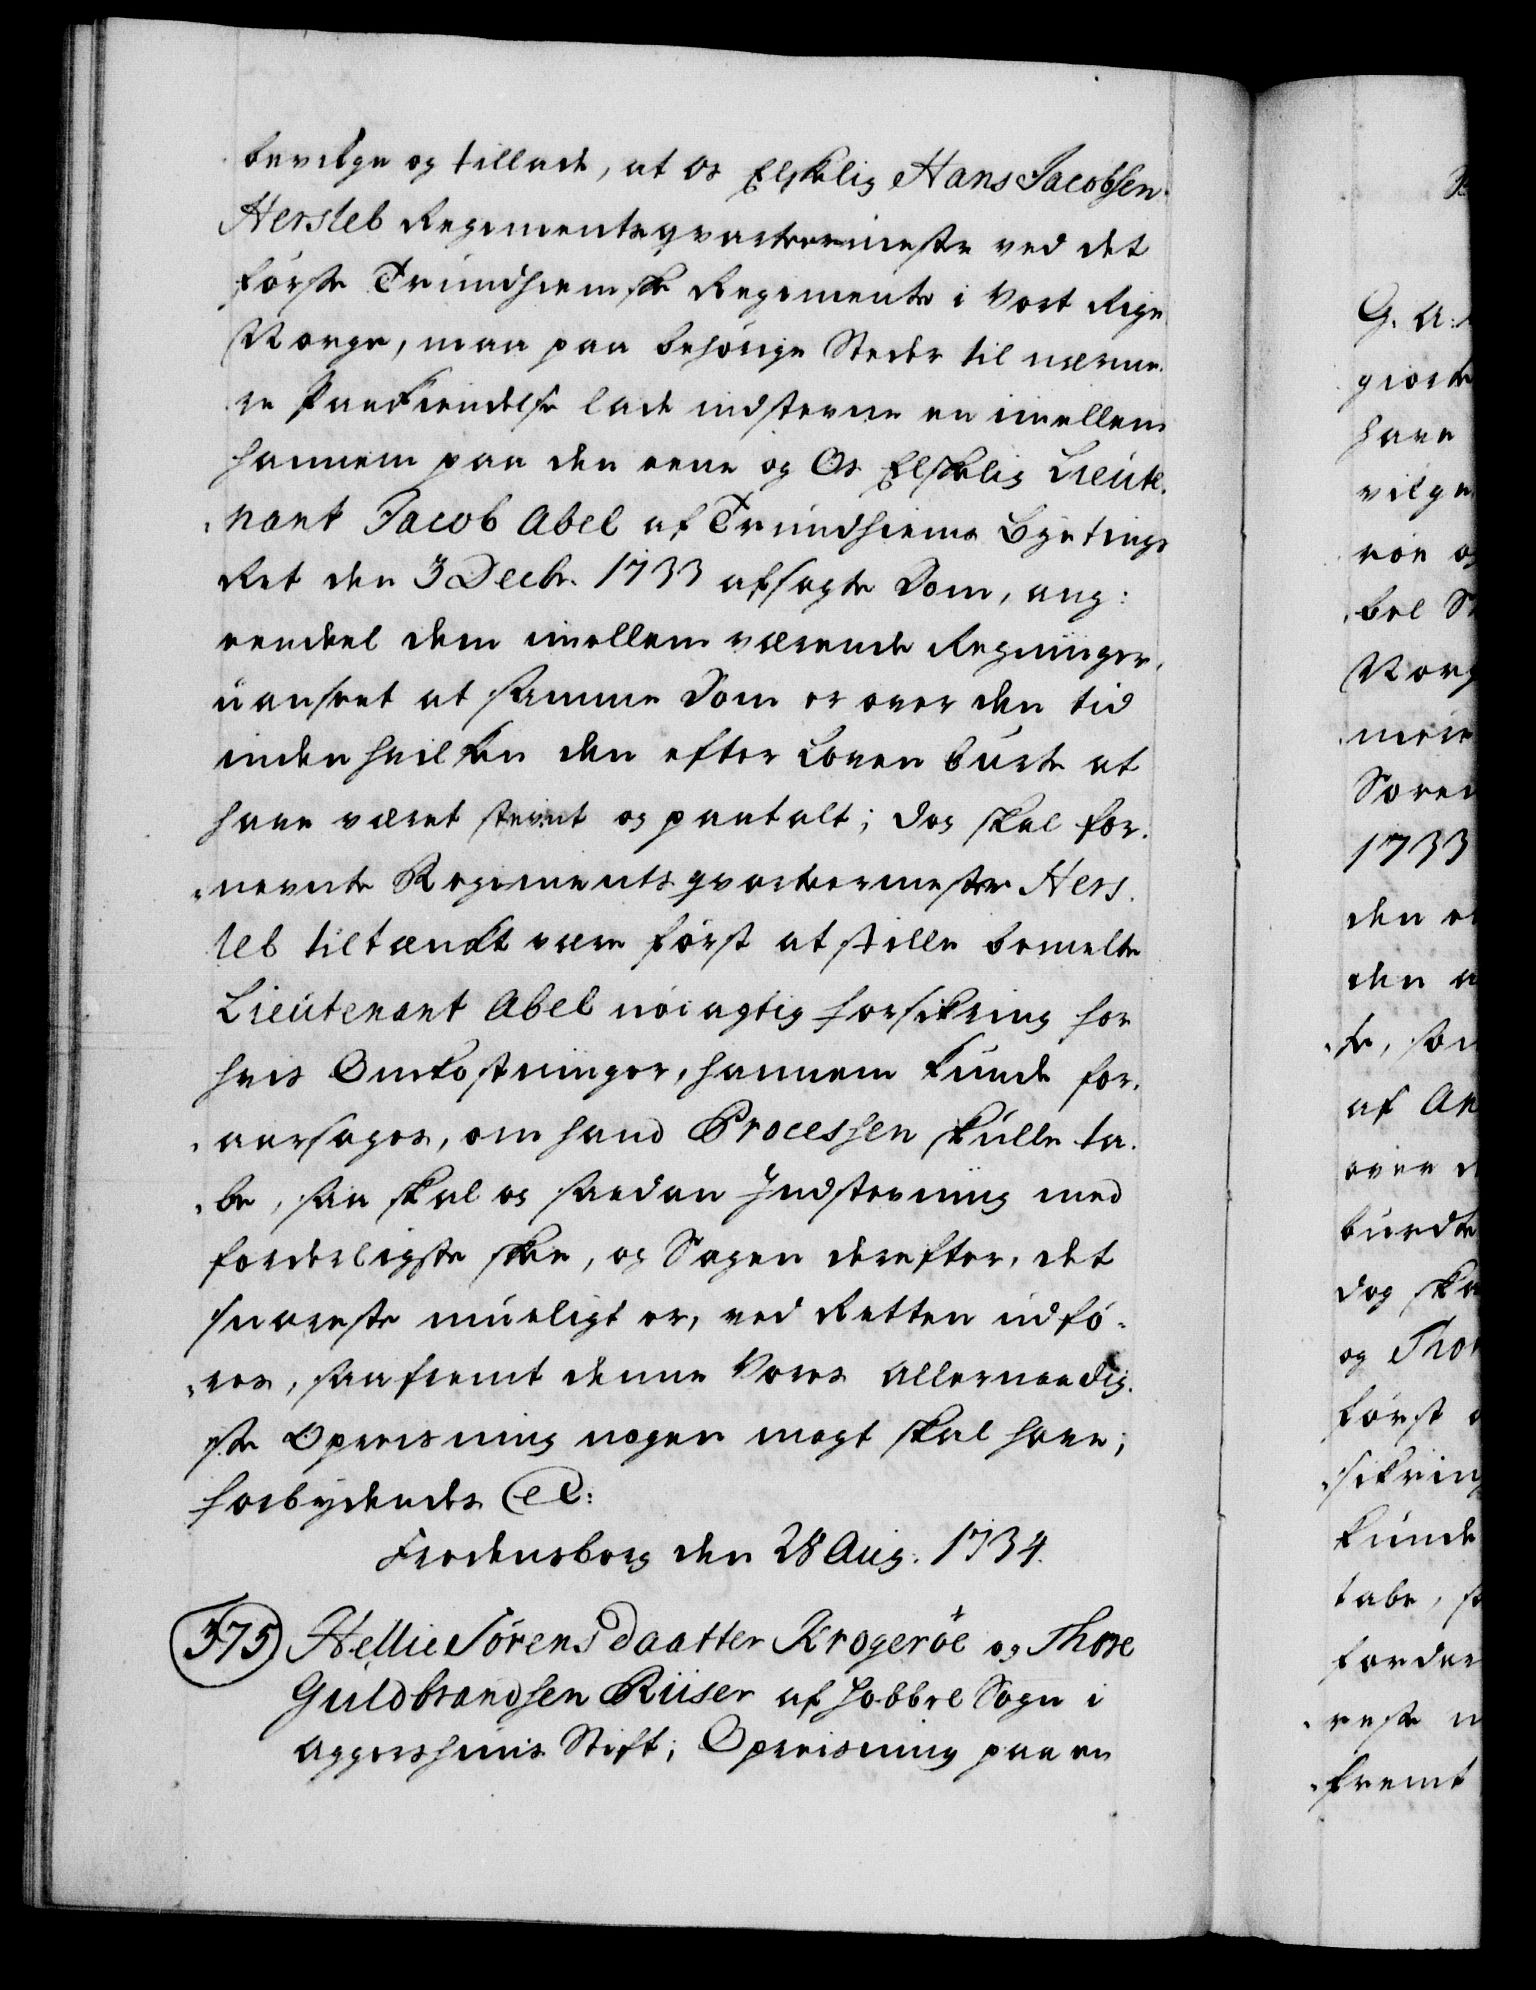 bevilge og tillade, at Os Elskelig Hans Jacobsen
Hersleb Regimentsqvarteermester ved det
første Trundhiemske Regimente i Vort Rige
Norge, maa paa behørige Steder til nærme
re Paakiendelse lade indstevne en imellem
hannem paa den eene og Os Elskelig Lieute,
,nant Jacob Abel af Trundhiems Byetings
Ret den 3 Decbr. 1733 afsagte Dom, ang:
eendeel dem imellem værende Regninger,
uanseet at samme Dom er over den tid
inden hvilken den efter Loven burte at
have været stevnt og paatalt; dog skal for,
,nevnte Regimentsqvarteermester Hers,
leb tiltænkt være først at stille bemelte
Lieutenant Abel nøiagtig forsikring for
hvis Omkostninger, hannem kunde for,
,aarsages, om hand Processen skulle ta,
,be, saa skal og saadan Indstevning med
forderligste skee, og Sagen derefter, det
snareste mueligt er, ved Retten udfø,
,res, saafremt denne Vores allernaadig,
ste Opreisning nogen magt skal have;
forbydendes etc:
Fredensborg den 28 Aug. 1734.
375 Hellie Sørens Daatter Krogerøe og Thore
Guldbrandsen Riiser af Hobbøl Sogn i
Aggershuus Stift; Opreisning paa en
G. A:
giorte
have
vilge
røe og
bøl S
Norg
meir
Søren
1733
den
den
te, som
af An
over d
burdte
dog ska
og Thor
først
,sikring
kunde
tabe, s
forder
,reste m
,fremt